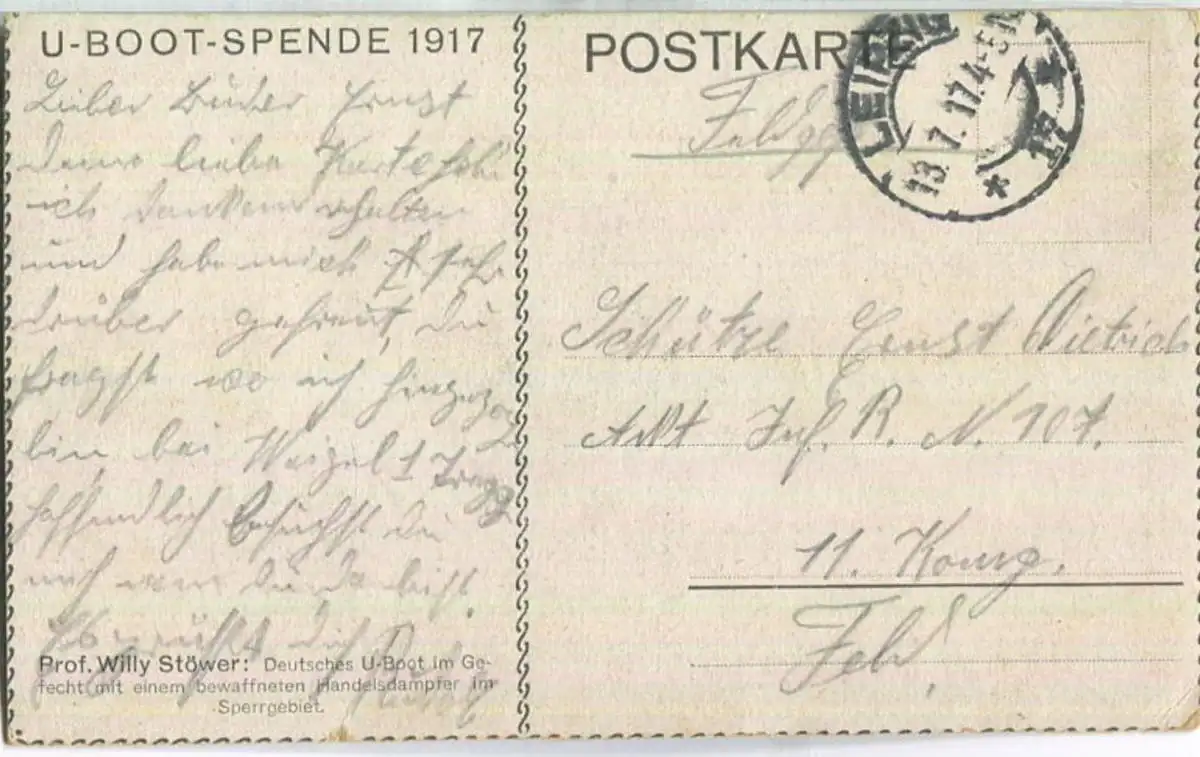 U-BOOT-SPENDE 1917
Lieber Bruder Ernst
deine liebe Karte habe
ich dankend erhalten
und habe mich sehr
drüber gefreut, du
fragst wo ich hingezogen
bin, bei Weigel 1 Trepp
hoffendlich besuchst du
mich wen du da bist.
Es grüßt dich
Prof. Willy Stöwer: Deutsches U-Boot im Ge-
fecht mit einem bewaffneten Handelsdampfer im
Sperrgebiet.
POSTKARTE
LEIPZIG
13.7.17.4-5N
* 17 *
Schütze Ernst Dietrich
Inf. R. N. 107.
11. Komp.
Feld